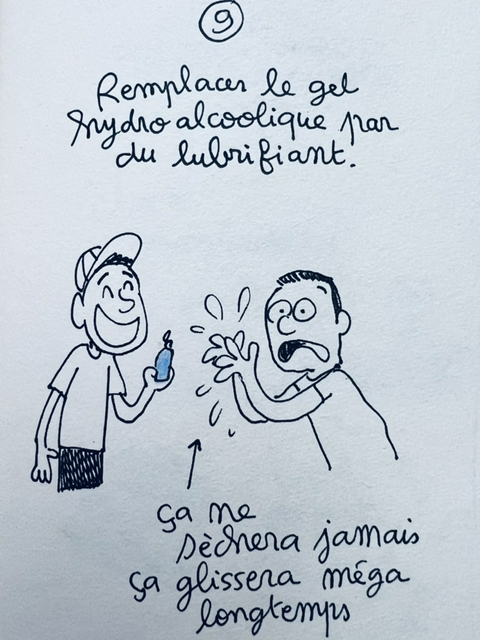 9
Remplacer le gel
hydroalcoolique par
du lubrifiant.
ça ne
sèchera jamais
ça glissera méga
longtemps